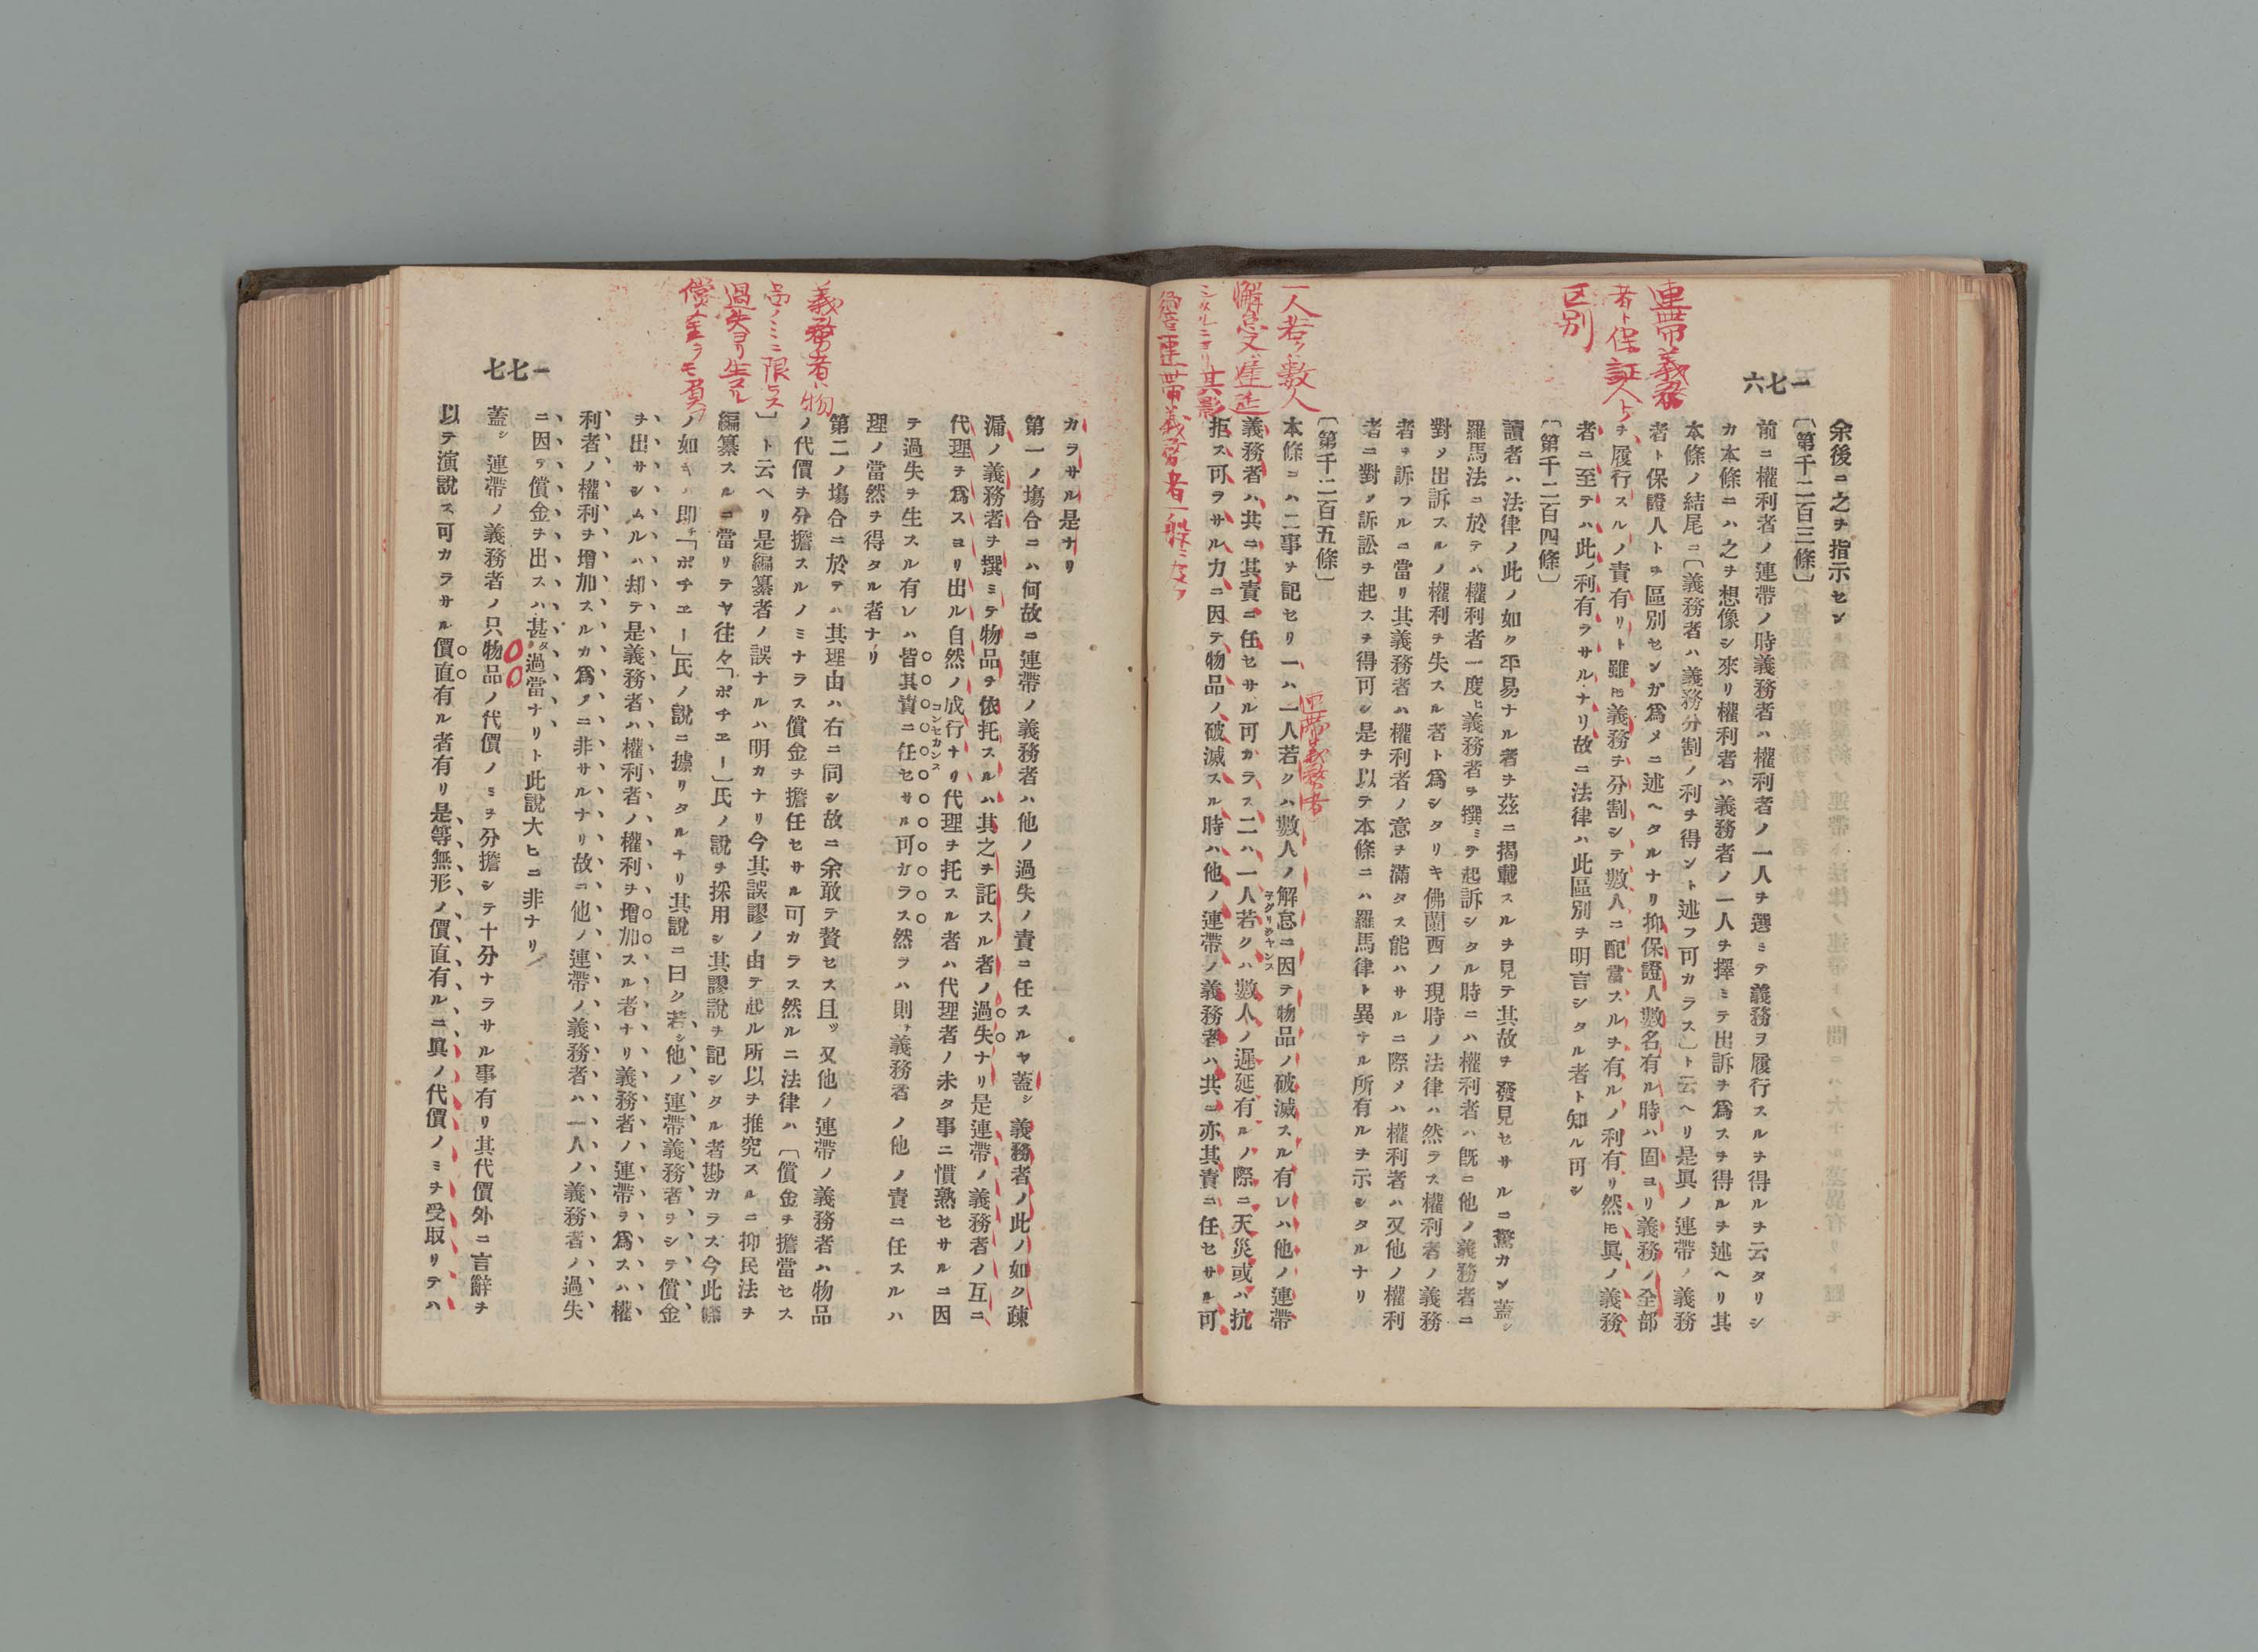 一七六
連帶義務
者ト保証人トノ
区別
余後ニ之ヲ指示セン
〔第千二百三條〕
前ニ權利者ノ連帶ノ時義務者ハ權利者ノ一人ヲ選ミテ義務ヲ履行スルヲ得ルヲ云タリシ
カ本條ニハ之ヲ想像シ來リ權利者ハ義務者ノ一人ヲ擇ミテ出訴ヲ爲スヲ得ルヲ述ヘリ其
本條ノ結尾ニ〔義務者ハ義務分割ノ利ヲ得ント述フ可カラス〕ト云ヘリ是眞ノ連帶ノ義務
者ト保證人トヲ區別センガ爲メニ述ヘタルナリ抑保證人數名有ル時ハ固ヨリ義務ノ全部
ヲ履行スルノ責有リト雖𪜈義務ヲ分割シテ數人ニ配當スルヲ有ルノ利有リ然𪜈眞ノ義務
者ニ至テハ此ノ利有ラサルナリ故ニ法律ハ此區別ヲ明言シタル者ト知ル可シ
〔第千二百四條〕
讀者ハ法律ノ此ノ如ク平易ナル者ヲ茲ニ揭載スルヲ見テ其故ヲ發見セサルニ驚カン蓋シ
羅馬法ニ於テハ權利者一度ヒ義務者ヲ撰ミテ起訴シタル時ニハ權利者ハ既ニ他ノ義務者ニ
對ソ出訴スルノ權利ヲ失スル者ト爲シタリキ佛蘭西ノ現時ノ法律ハ然ラス權利者ノ義務
者ヲ訴フルニ當リ其義務者ハ權利者ノ意ヲ滿タス能ハサルニ際メハ權利者ハ又他ノ權利
者ニ對ソ訴訟ヲ起スヲ得可シ是ヲ以テ本條ニハ羅馬律ト異ナル所有ルヲ示シタルナリ
〔第千二百五條〕
連帶義務者
一人若ク數人
懈怠又遲延
シタルニヨリ其影
響連帶義務者一般ニ及フ
本條ニハ二事ヲ記セリ一ハ一人若クハ數人ノ解怠ニ因テ物品ノ破滅スル有レハ他ノ連帶
義務者ハ共ニ其責ニ任セサル可カラス二ハ一人若クハ數人ノ遲延有ルノ際ニ天災或ハ抗
拒ス可ラサル力ニ因テ物品ノ破滅スル時ハ他ノ連帶ノ義務者ハ共ニ亦其責ニ任セサル可
一七七
義務者ハ物
品ノミニ限ラス
過失ヨリ生スル
償金ヲモ負フ
カラサル是ナリ
第一ノ塲合ニハ何故ニ連帶ノ義務者ハ他ノ過失ノ責ニ任スルヤ蓋シ義務者ノ此ノ如ク疎
漏ノ義務者ヲ撰ミテ物品ヲ依托スルハ其之ヲ託スル者ノ過失ナリ是連帶ノ義務者ノ互ニ
代理ヲ爲スヨリ出ル自然ノ成行ナリ代理ヲ托スル者ハ代理者ノ未タ事ニ慣熟セサルニ因
コンセカンス
テ過失ヲ生スル有レハ皆其責ニ任セサル可カラス然ラハ則チ義務者ノ他ノ責ニ任スルハ
理ノ當然ヲ得タル者ナリ
第二ノ塲合ニ於テハ其理由ハ右ニ同シ故ニ余敢テ贅セス且ツ又他ノ連帶ノ義務者ハ物品
ノ代價ヲ分擔スルノミナラス償金ヲ擔任セサル可カラス然ルニ法律ハ〔償金ヲ擔當セス
〕ト云ヘリ是編纂者ノ誤ナルハ明カナリ今其誤謬ノ由テ起ル所以ヲ推究スルニ抑民法ヲ
編纂スルニ當リテヤ往々「ポチエー」氏ノ說ヲ採用シ其謬說ヲ記シタル者尠カラス今此條
ノ如キハ即チ「ポチエー」氏ノ說ニ據リタルナリ其說ニ曰ク若シ他ノ連帶義務者ヲシテ償金
ヲ出サシムルハ却テ是義務者ハ權利者ノ權利ヲ增加スル者ナリ義務者ノ連帶ヲ爲スハ權
利者ノ權利ヲ增加スルカ爲ノニ非サルナリ故ニ他ノ連帶ノ義務者ハ一人ノ義務者ノ過失
ニ因テ償金ヲ出スハ甚タ過當ナリト此說大ヒニ非ナリ
蓋シ連帶ノ義務者ノ只物品ノ代價ノミヲ分擔シテ十分ナラサル事有リ其代價外ニ言辭ヲ
以テ演說ス可カラサル價直有ル者有リ是等無形ノ價直有ルニ眞ノ代價ノミヲ受取リテハ